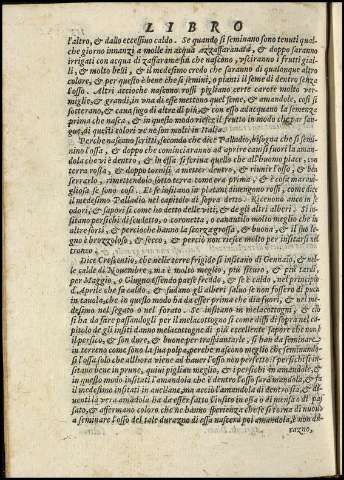 LIBRO
l'altro, & dallo eccessiuo caldo. Se quando si seminano sono tenuti qualche
giorno innanzi a molle in acqua azzaffaranata, & doppo saranno
irrigati con acqua di zaffarame sin che nascano, vsciranno i frutti gial
li, & molto belli, & il medesimo credo che saranno di qualunque altro
colore, & per questo è bene che si semini, o pianti il seme di dentro senza
l'osso. Altri accioche nascono rossi pigliano certe carote molto ver
miglie, & grandi, in vna di esse mettono quel seme, & amandole, cosi si
sotterano, & cauasugo di altre di più, & con esso adacquano la semenza
prima che nasca, & in questo modo riesce il frutto in modo che par san
gue, di questi colori ve ne son molti in Italia.
Perche nascano scritti, secondo che dice Palladio, bisogna che si semi
nino l'ossa, & doppo che cominciaranno ad aprire cauisi fuori la aman
dola che vi è dentro, & in essa si scriua quello che all'huomo piace, con
terra rossa, & doppo torni a metter dentro, & riunire l'osso, & bis
serrarlo, rimettendolo sotto terra come era prima, & è cosa maraui
gliosa se sono cosi. Et se insitano in platani diuengono rossi, come dice
il medesimo Palladio nel capitolo di sopra detto. Riceuono anco in se
odori, & sapori si come ho detto delle viti, & de gli altri alberi. Si in
sitano persichi di scudetto, o coronetta, o cannellà molto meglio che in
altre sorti, & percioche hanno la scorza grossa, & buona, & il suo le
gno è brozzoloso, & secco, & perciò non riesce molto per insitarsi nel
tronco.
Dice Crescentio, che nelle terre frigide si insitano di Gennaio, & nel
le calde di Nouembre, ma è molto meglio, più sicuro, & più tardi,
per Maggio, o Giugno essendo paese freddo, & se è caldo, nel principio
d'Aprile che fa caldo, & sudano gli alberi salvo se non fossero di puca
in tauola, che in questo modo ha da esser prima che dia fuori, & nel me
desimo nel segato o nel forato. Se insitano in melacottogni, & ciò
si ha da fare passandogli per il melacottogno si come dissi di sopra nel ca
pitolo de gli insiti danno melacottogni di più eccellente sapore che non
il persico, & son dure, & buone per trassiantarle, si han da seminare
in terreno come sono la sua polpa, perche nascano meglio che seminando
si l'osso solo, che allhora viene ad hauer l'osso non perfetto. I persichi si in
sitano bene in prune, quini pigliano meglio, & i persichi in amandole, &
in questo modo insitati l'amandola che è dentro l'osso sarà mandola, & fa
il medesimo insitato in auellane, ma acciò l'amandola di dentro stia, & di
uenti la vera amandola ha da esser fatto l'insito in esso o di mensa o di pas
sato, & affermano coloro che ne hanno sperienza che se si torna di nuouo
a seminare l'osso del tale durazno di essa nascerà poi amandola, & non du
razno,